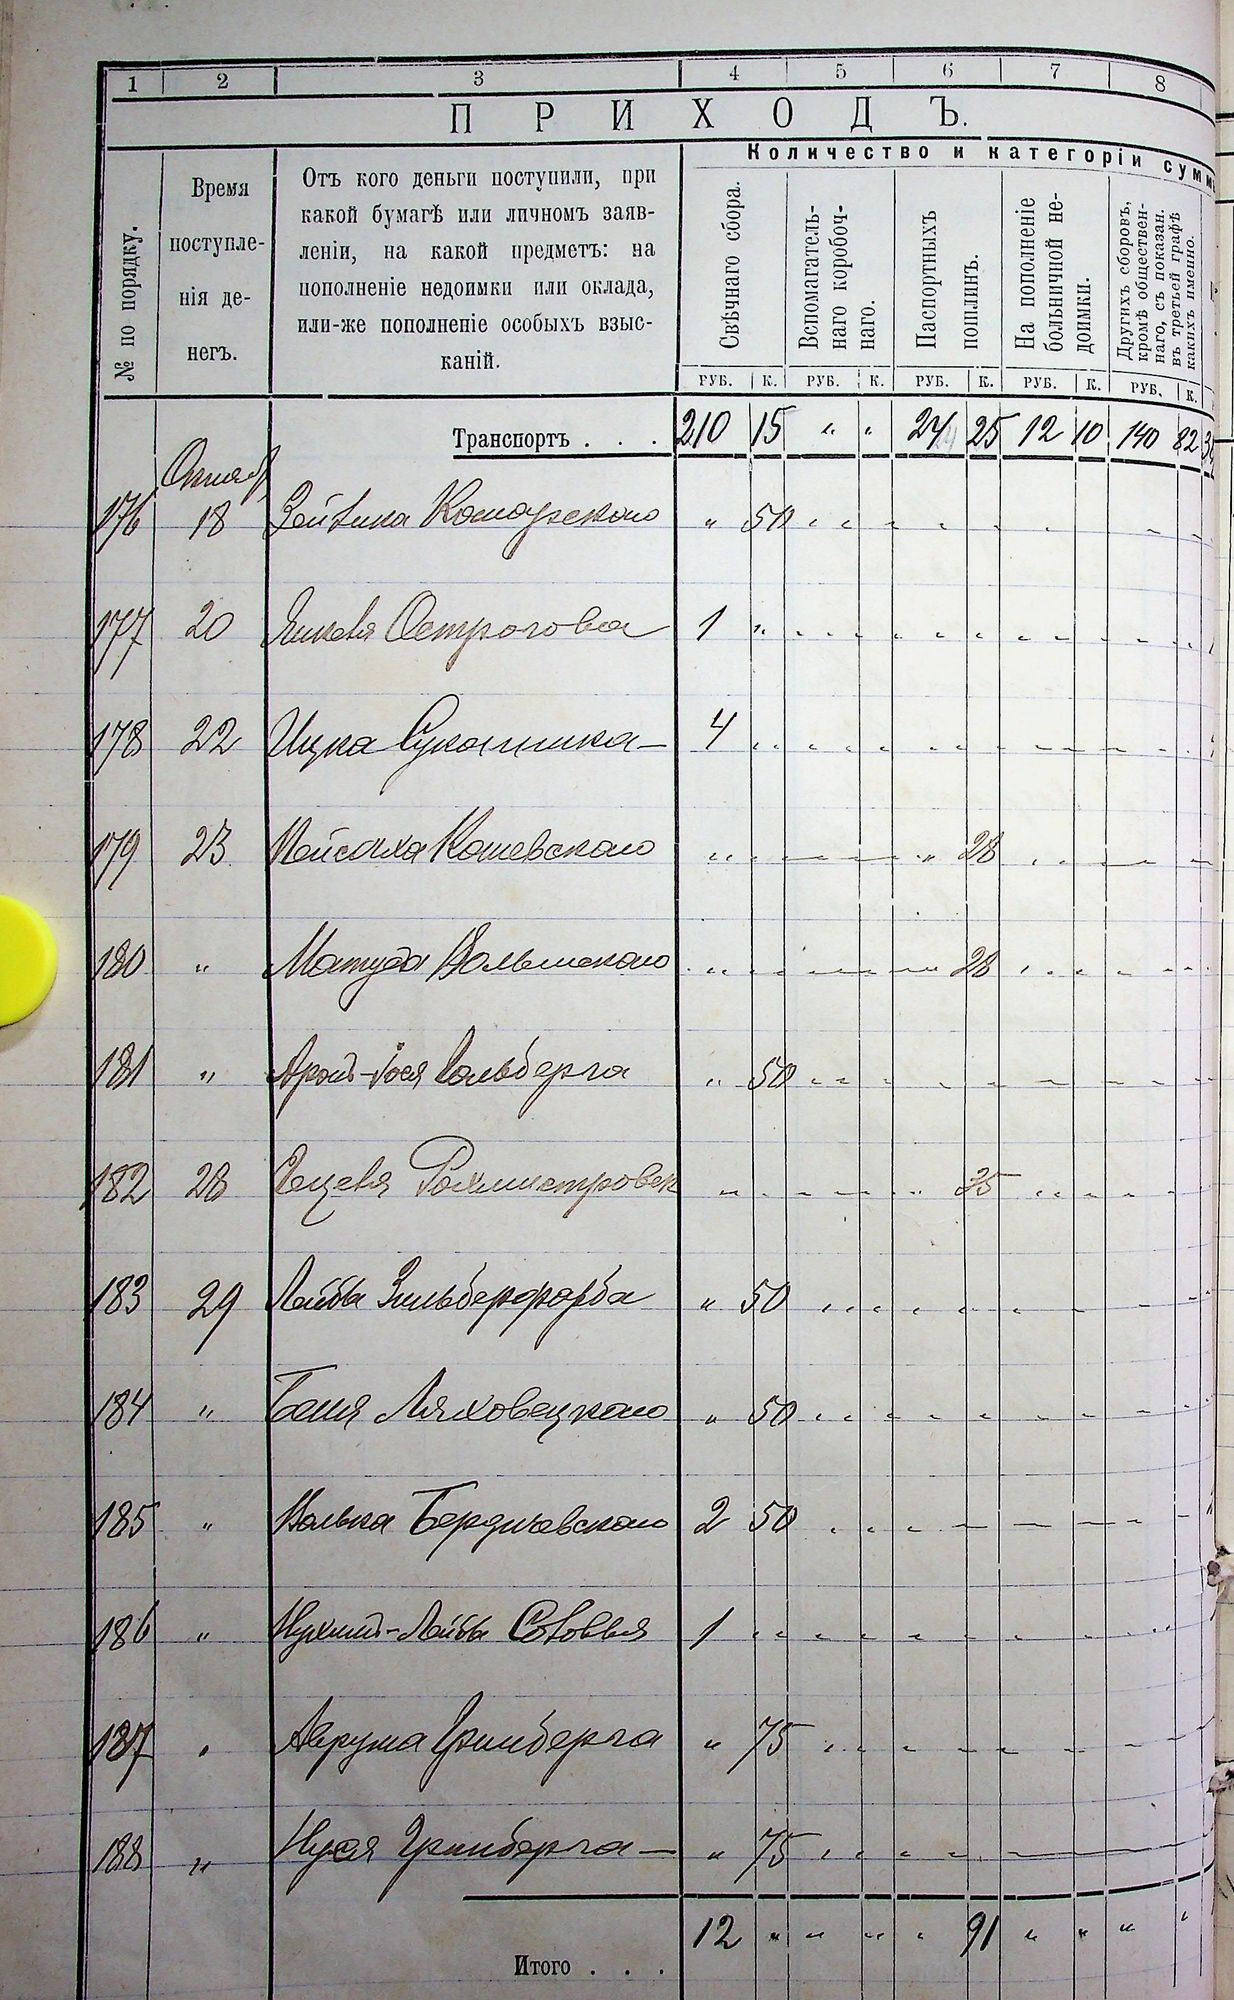 1 2 3 4 5 6 7 8
ПРИХОДЪ.
Количество и категоріи сумм
№ по порядку.
Время
поступле-
нія де-
негъ.
Отъ кого деньги поступили, при
какой бумагѣ или личномъ заяв-
леніи, на какой предметъ: на
пополненіе недоимки или оклада,
или-же пополненіе особыхъ взыс-
каній.
Свѣчнаго сбора.
Вспомагатель-
наго коробоч-
наго.
Паспортныхъ
пошлинъ.
На пополненіе
больничной не-
доимки.
Другихъ сборовъ,
кромѣ обществен-
наго, съ показан.
въ третьей графѣ
какихъ именно.
РУБ. К. РУБ. К. РУБ. К. РУБ. К. РУБ. К.
Транспортъ . . . 210 15 " " 24 25 12 10 140 82
Октяб
176 18 Комарского " 50
177 20 Янкеля Острогова 1 "
178 22 Ицка 4
179 23 Пейсаха Кошевского " 28
180 " Волынского 28
181 " Арон-Іося Гольберга " 50
182 28 Рахмистровск 35
183 29 Лейбы Зильберфарба " 50
184 " Беня Ляховецкого " 50
185 " Волька Бердичевского 2 50
186 " Нухим-Лейбы Соловья 1
187 " Аврума Гринберга " 75
188 " Гринберга — " 75
Итого . . . 12 " " " " 91 " " " "